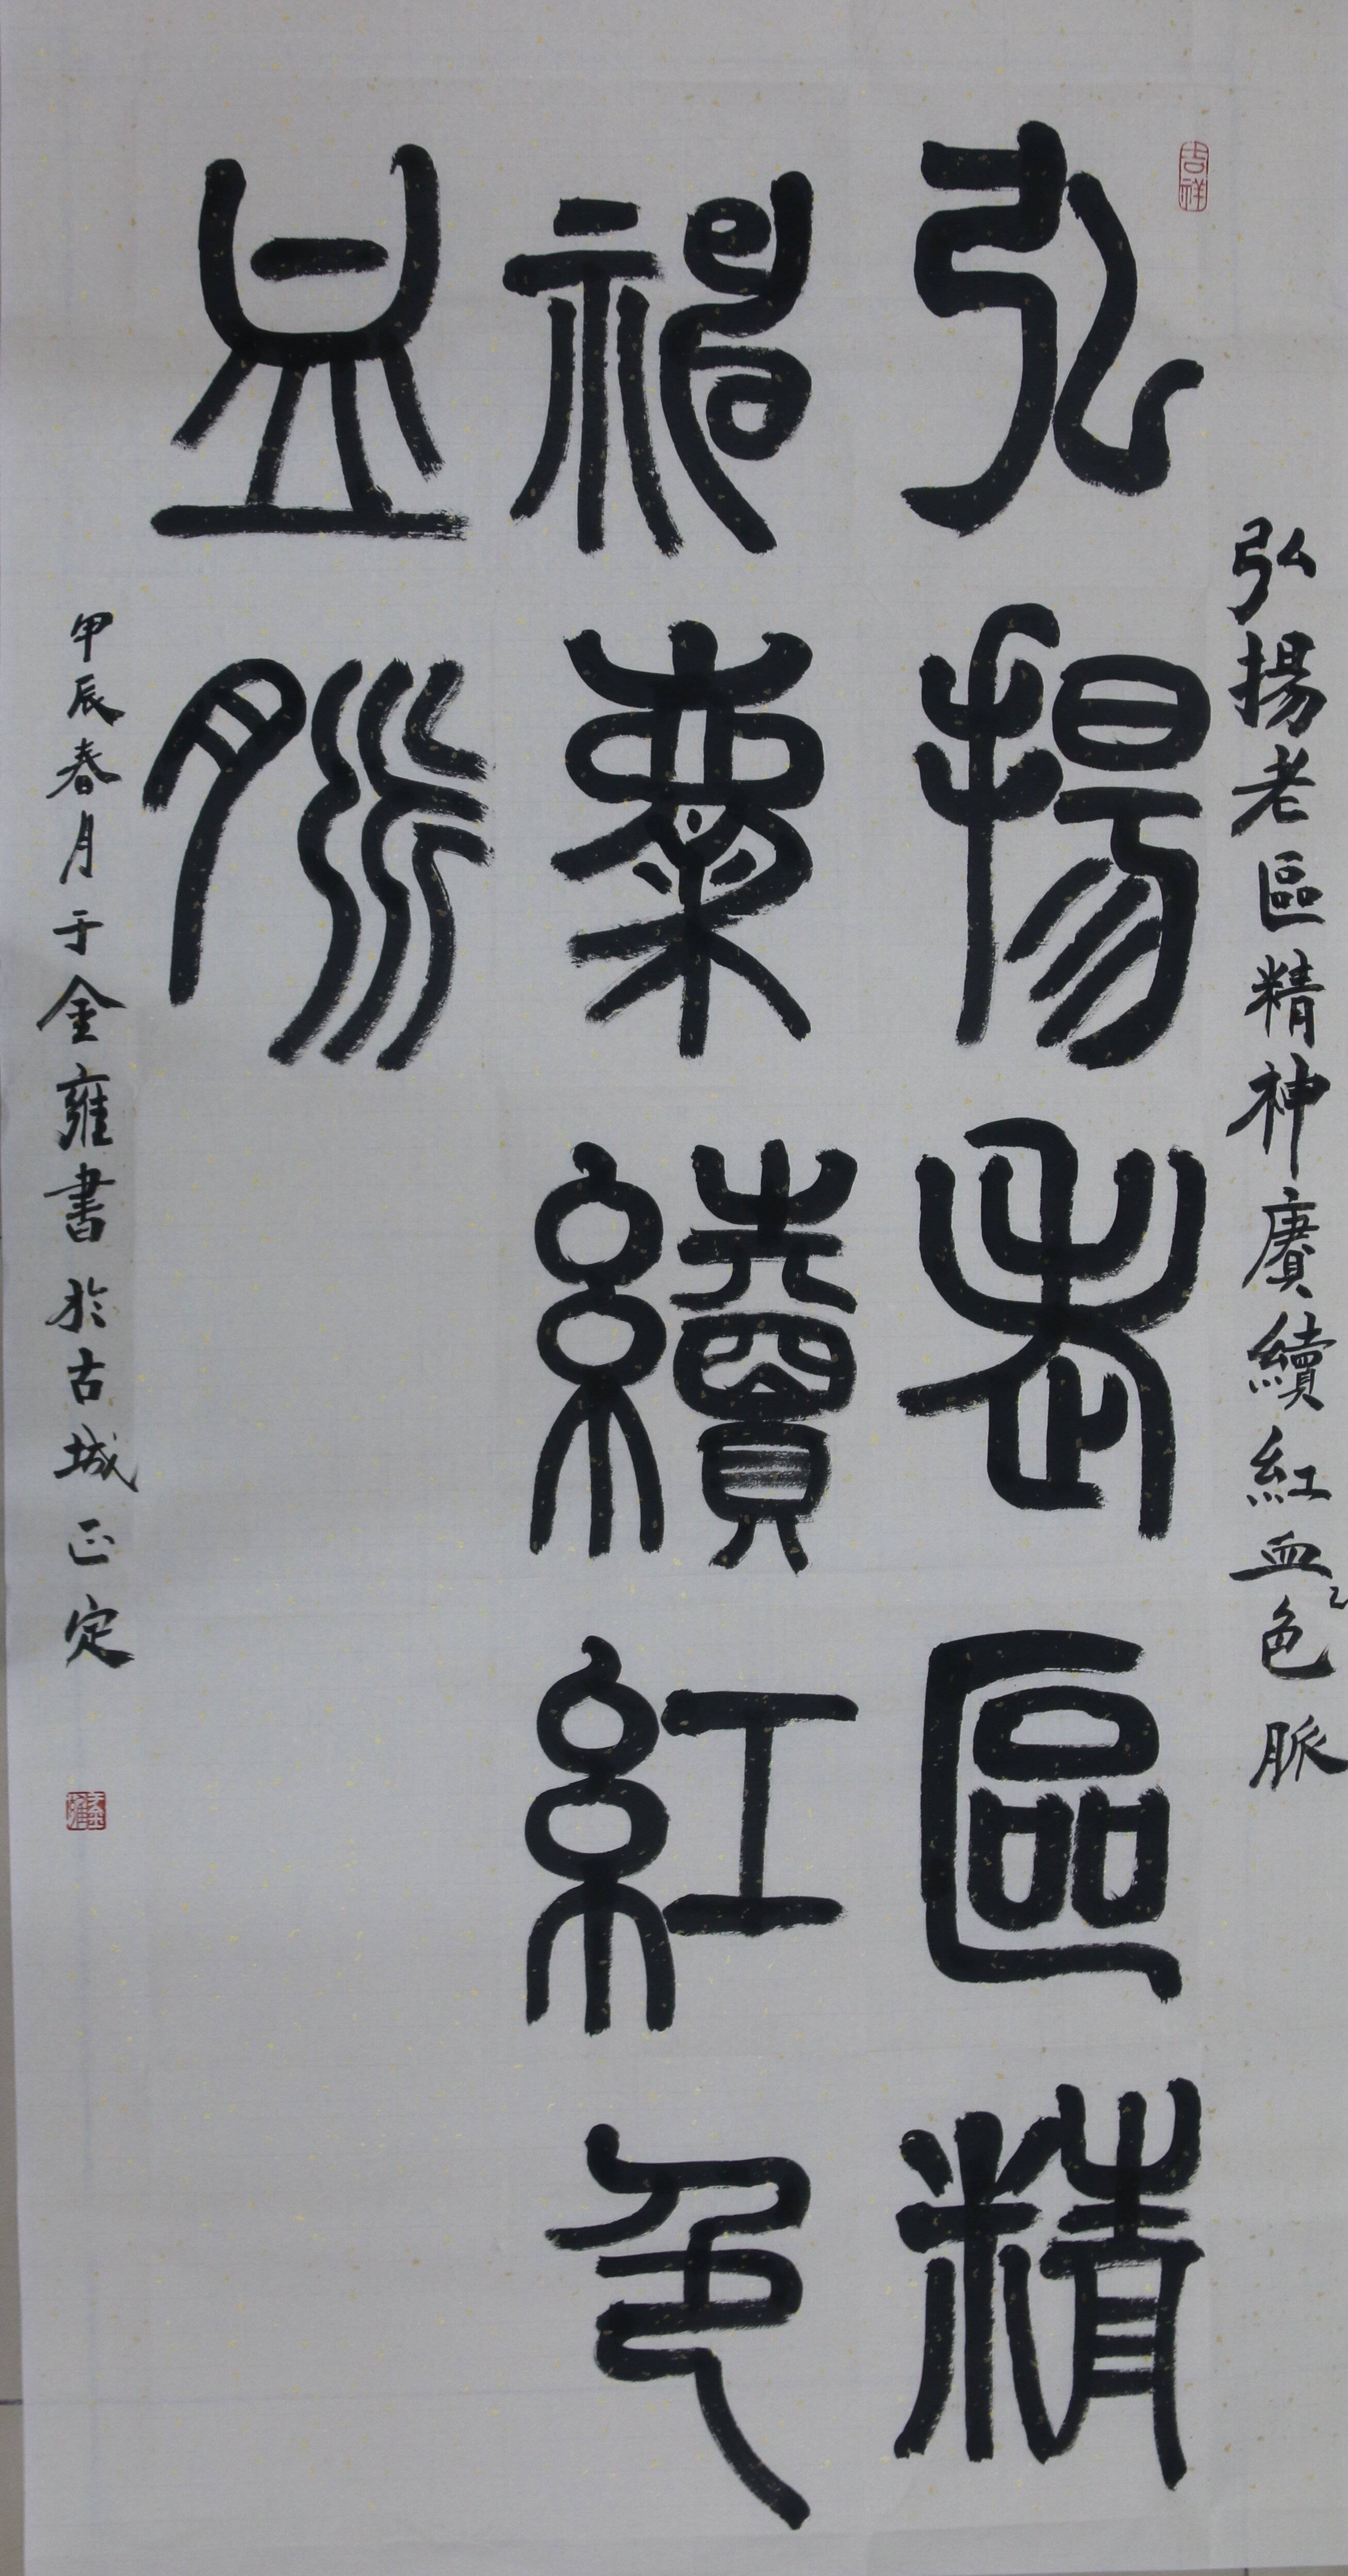 弘揚老區精神賡續紅血色脈
吉祥
弘揚老區精
神賡續紅色
血脈
甲辰春月于金雍書於古城正定